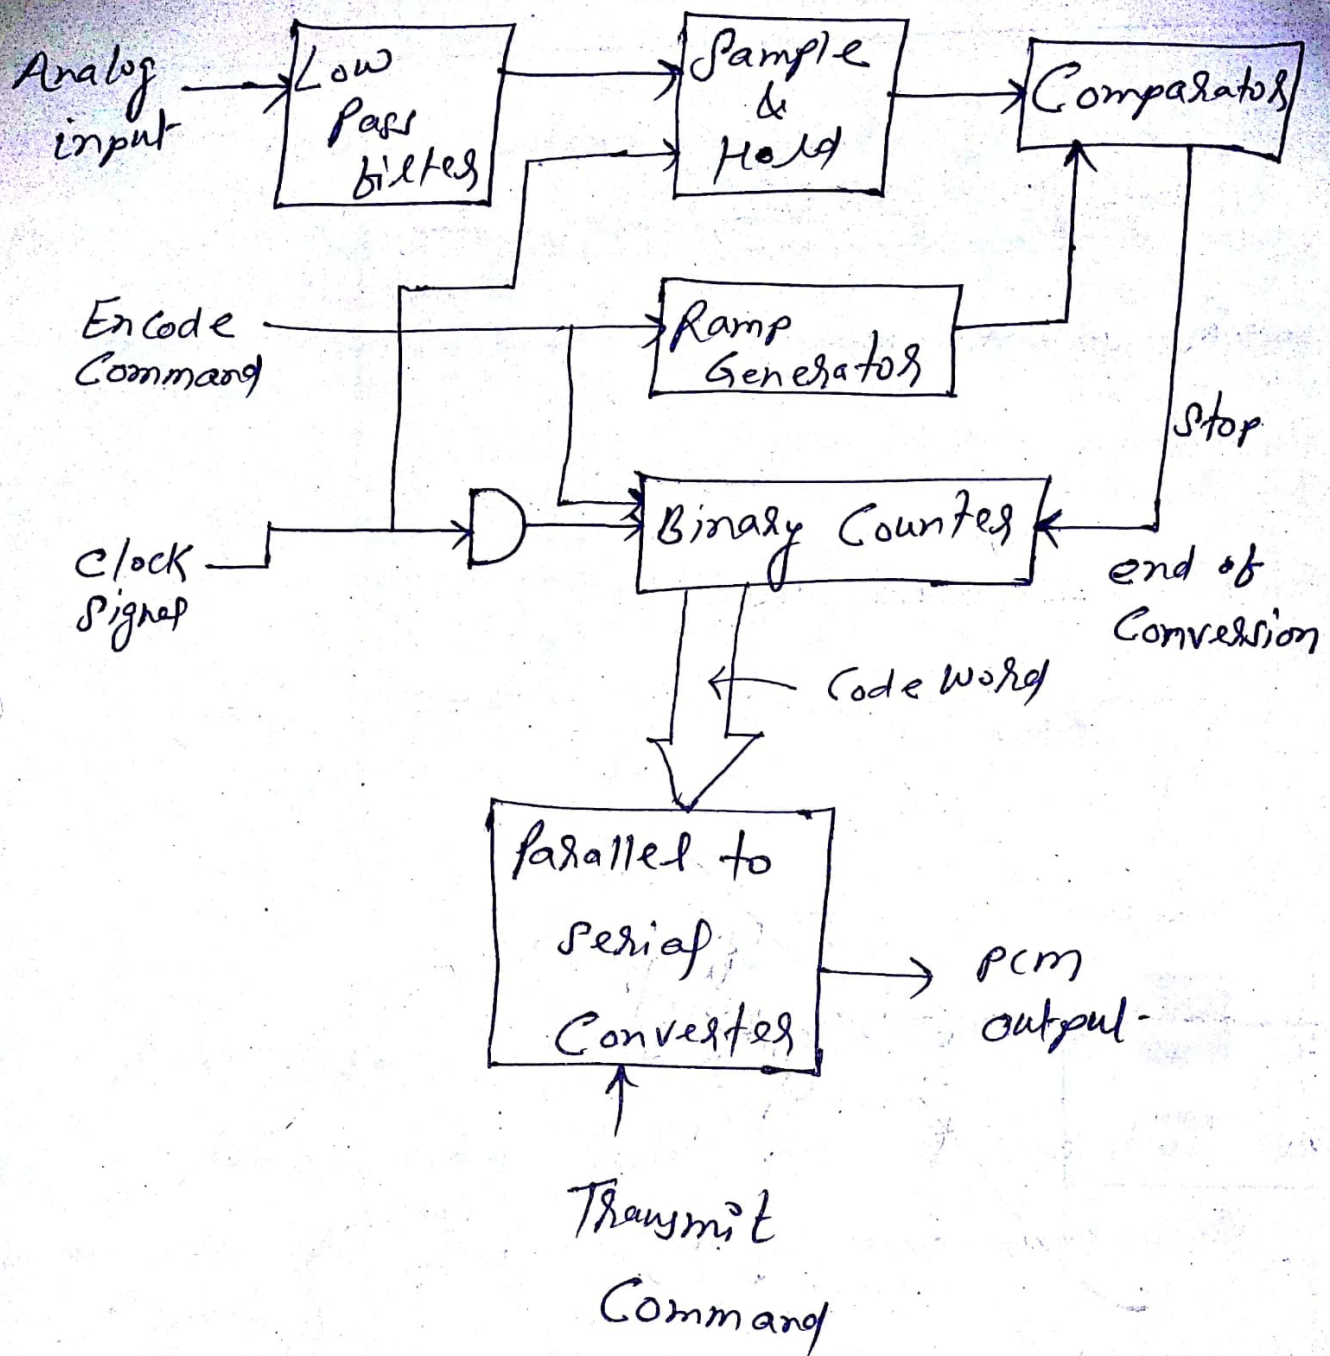 Analog
input
Low
Pass
filter
Sample
&
Hold
Comparator
Encode
Command
Ramp
Generator
Stop
Clock
Signal
Binary Counter
end of
Conversion
Code Word
Parallel to
Serial
Converter
PCM
output
Transmit
Command